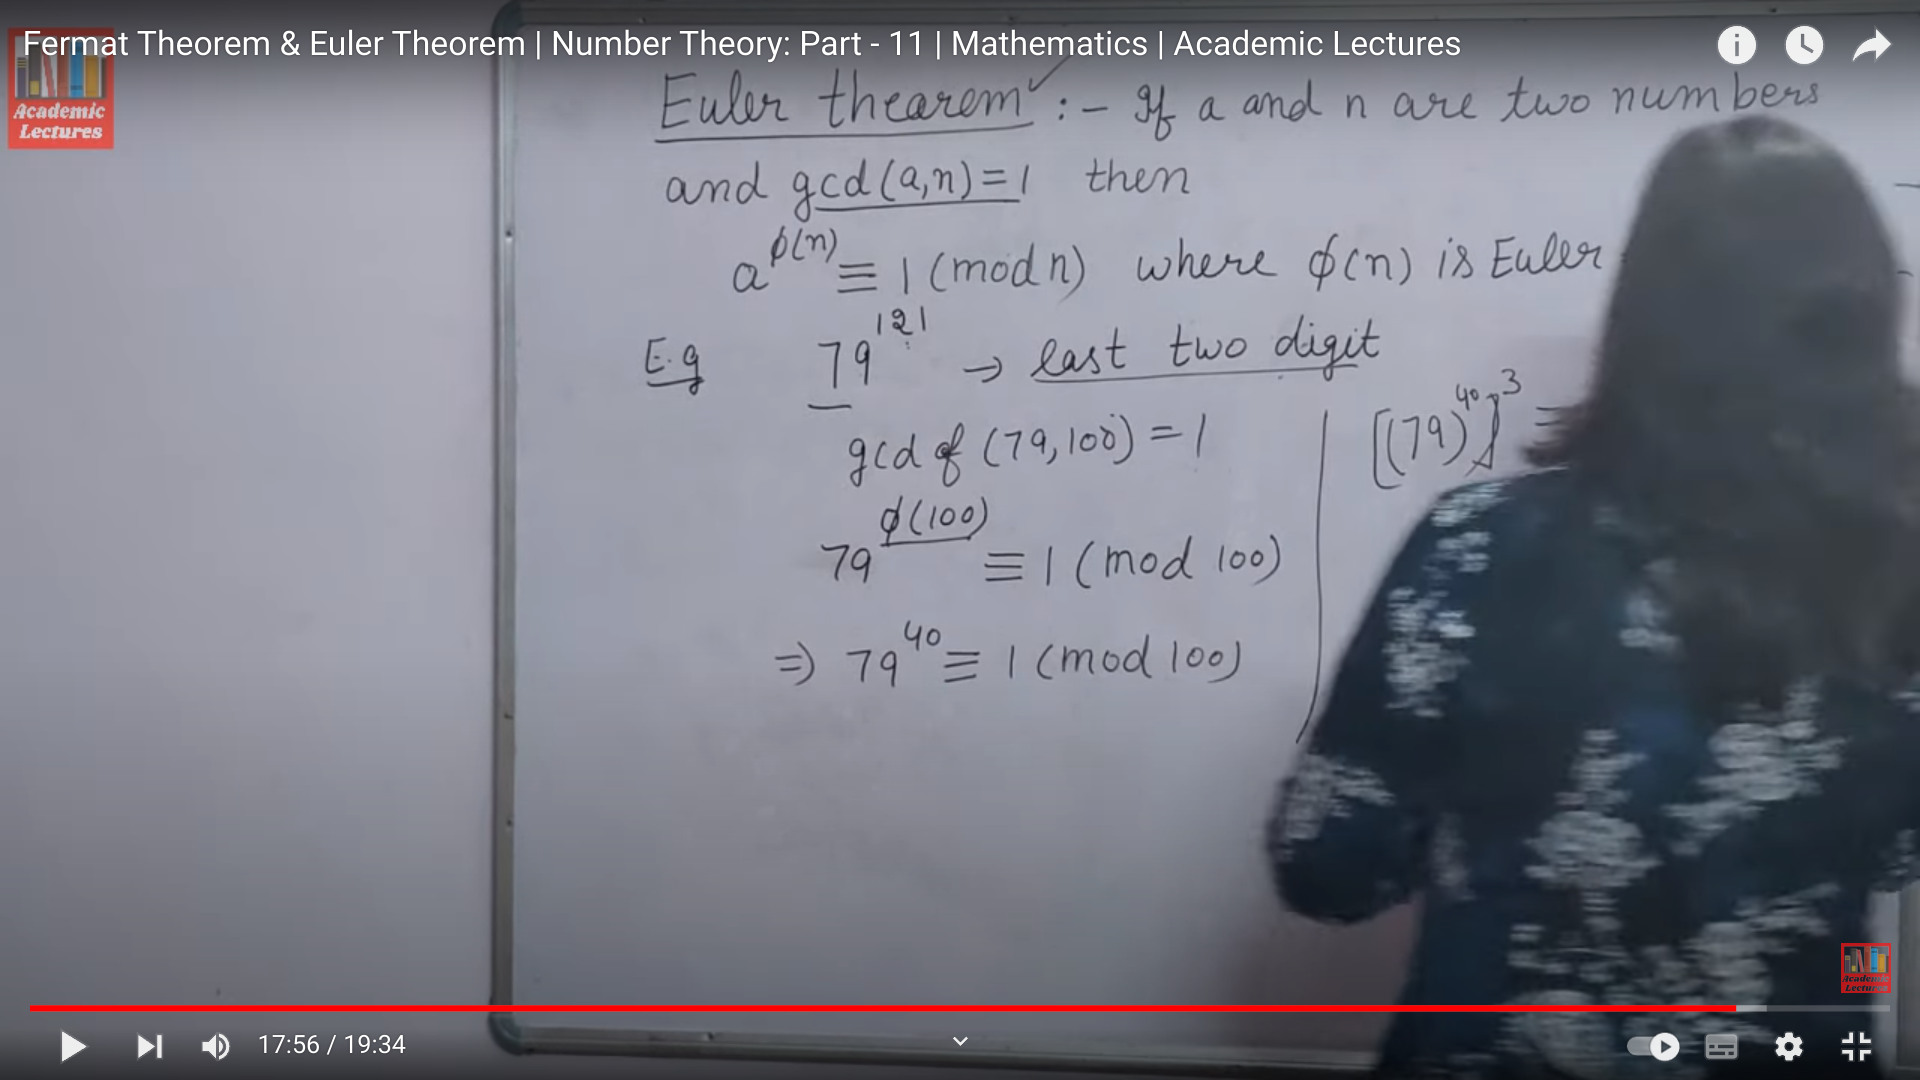 Fermat Theorem & Euler Theorem | Number Theory: Part - 11 | Mathematics | Academic Lectures
Academic
Lectures
Euler thearem ✓ :- If a and n are two numbers
and gcd(a,n)=1 then
a^ϕ(n) ≡ 1 (mod n) where ϕ(n) is Euler
E.g 79^121 → last two digit
gcd of (79,100) = 1
[(79)^40]^3 ≡
79^ϕ(100) ≡ 1 (mod 100)
⇒ 79^40 ≡ 1 (mod 100)
Academic
Lectures
17:56 / 19:34